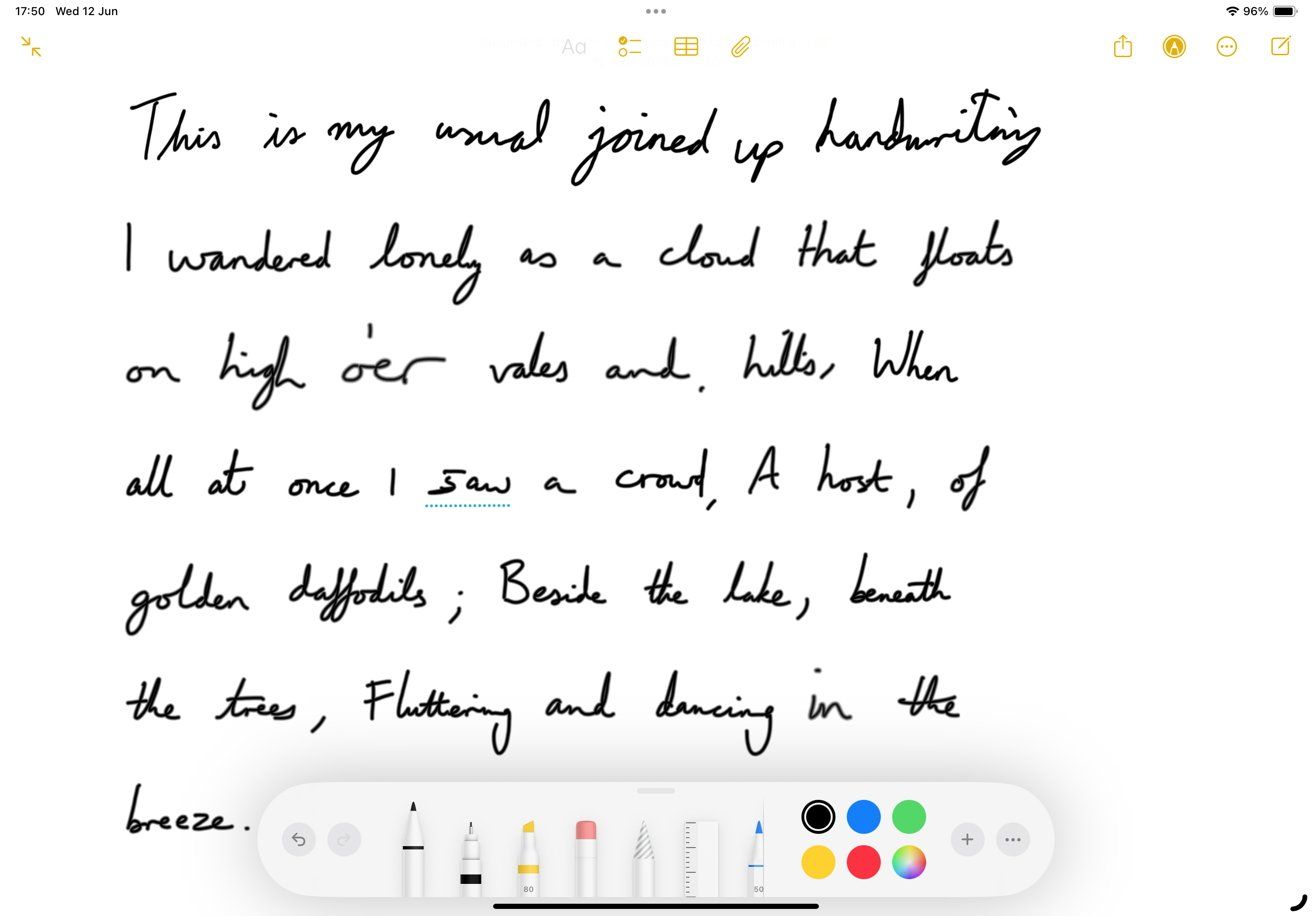 17:50 Wed 12 Jun 96%
Aa
This is my usual joined up handwriting
I wandered lonely as a cloud that floats
on high o'er vales and. hills, When
all at once I saw a crowd, A host, of
golden daffodils; Beside the lake, beneath
the trees, Fluttering and dancing in the
breeze.
80 50